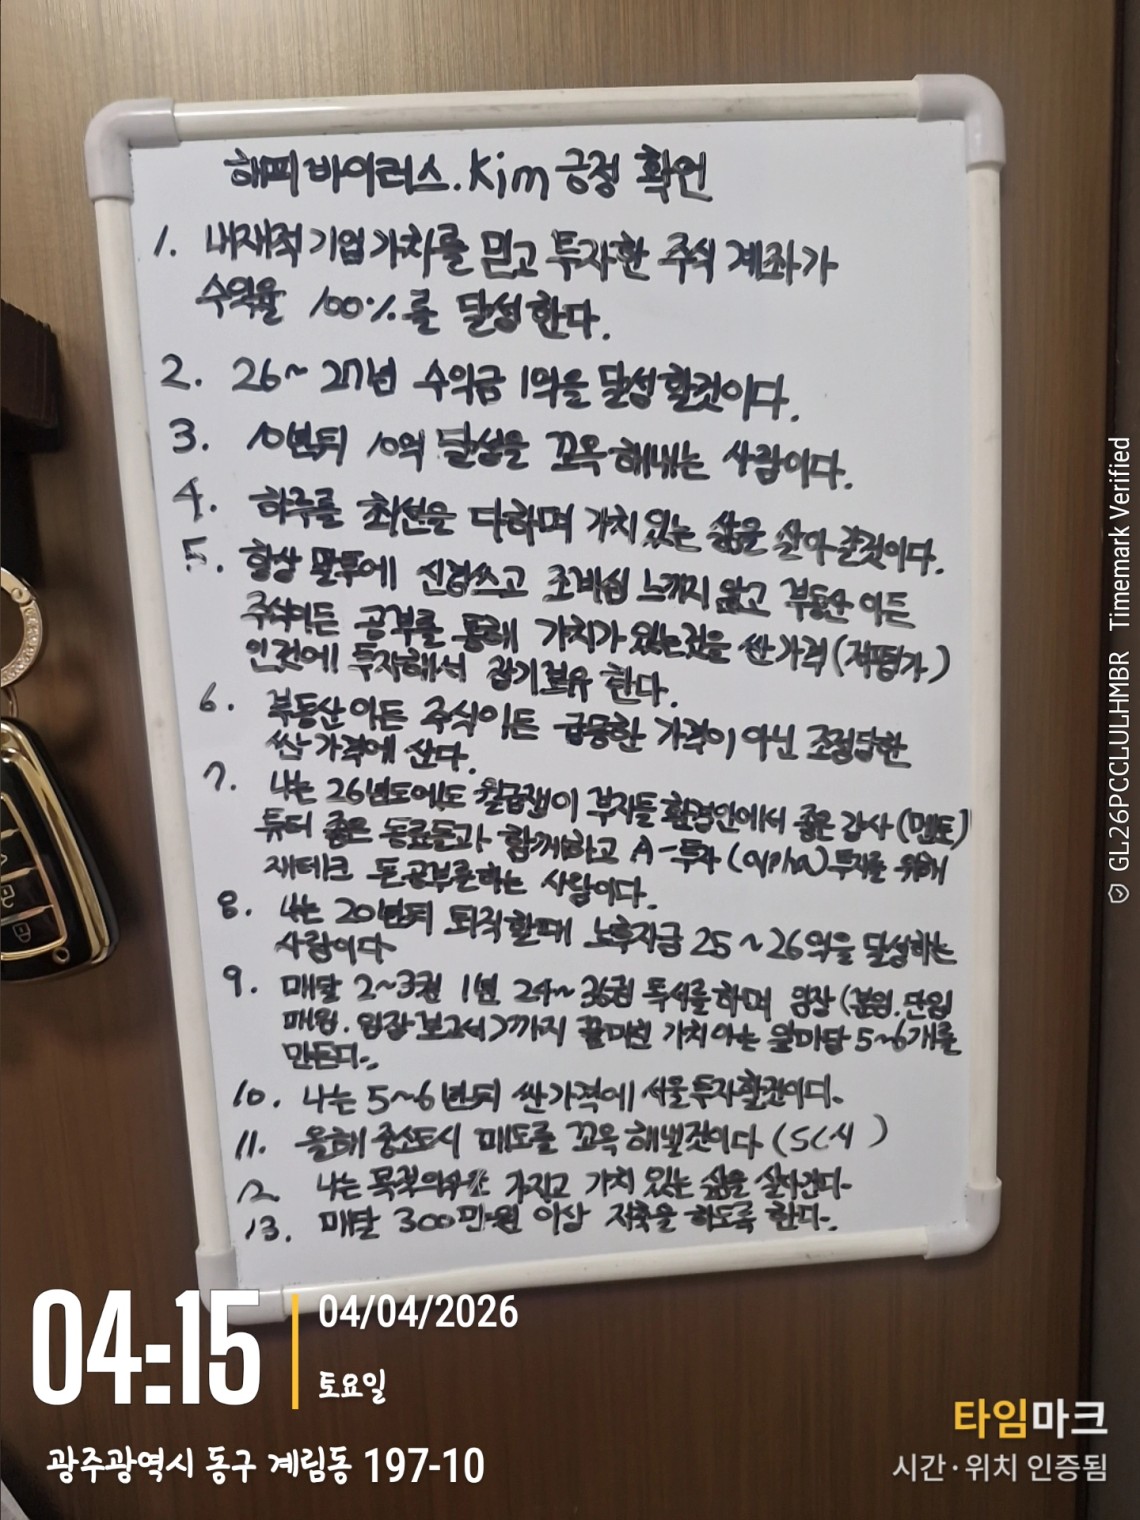 해피바이러스.Kim 긍정 확언
1. 내재적 기업가차를 믿고 투자한 주식 계좌가
수익율 100%를 달성한다.
2. 26~27년 수익금 1억을 달성할것이다.
3. 10년뒤 10억 달성을 꼬옥 해내는 사람이다.
4. 하루를 최선을 다하며 가치있는 삶을 살아갈것이다.
5. 항상 말투에 신경쓰고 조바심 느끼지 않고 부동산이든
주식이든 공부를 통해 가치가 있는것을 싼가격(저평가)
인것에 투자해서 장기보유 한다.
6. 부동산이든 주식이든 급등한 가격이 아닌 조정당한
싼가격에 산다.
7. 나는 26년도에도 월급쟁이 부자들 환경안에서 좋은 강사(멘토)
튜터 좋은 동료들과 함께하고 A-투자(alpha)투자를 위해
재테크 돈공부를하는 사람이다.
8. 나는 20년뒤 퇴직할때 노후자금 25~26억을 달성하는
사람이다
9. 매달 2~3권 1년 24~36권 독서를 하며 임장(분임.단임
매임.임장보고서)까지 끝마친 가치아는 월마달 5~6개를
만든다.
10. 나는 5~6년뒤 싼가격에 서울투자할것이다.
11. 올해 중소도시 매도를 꼬옥 해낼것이다 ( )
12 나는 가지고 가치 있는 삶을 살아간다.
13. 매달 300만원 이상 저축을 하도록 한다.
04:15
04/04/2026
토요일
광주광역시 동구 계림동 197-10
타임마크
시간·위치 인증됨
GL26PCCLULHMBR Timemark Verified